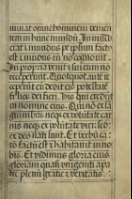 minat omnem hominem venien
tem in hunc mundum. In mundo
erat et mundus per ipsum factus
est et mundus eum non cognovit.
In propria venit et sui eum no
receperunt. Quotquot aut re
ceperunt eum dedit eis potestatē
filios dei fieri. his qui credūt
in nomine eius. Qui non ex sa
guinibus neqz ex voluntate car
nis neqz ex voluntate viri: sed
ex deo nati sunt. Et verbū ca
ro factū est et habitavit in no
bis. Et vidimus gloriā eius
gloriam quasi unigeniti a pa
tre plenū gratie et veritatis.